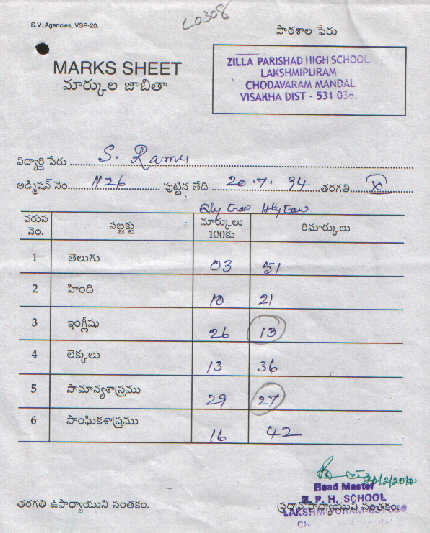 S.V. Agencies, VSP-20.
L0308
పాఠశాల పేరు
MARKS SHEET
మార్కుల జాబితా
ZILLA PARISHAD HIGH SCHOOL
LAKSHMIPURAM
CHODAVARAM MANDAL
VISAKHA DIST - 531 036
విద్యార్థి పేరు S. Ramu
అడ్మిషన్ నెం. 1126 పుట్టిన తేది 20.7.94 తరగతి X
Qly Hly
వరుస నెం. సబ్జక్టు మార్కులు 100కు రిమార్కులు
1 తెలుగు 03 51
2 హింది 10 21
3 ఇంగ్లీషు 26 13
4 లెక్కలు 13 36
5 సామాన్యశాస్త్రము 29 27
6 సాంఘికశాస్త్రము 16 42
Head Master
Z. P. H. SCHOOL
తరగతి ఉపాధ్యాయుని సంతకం. ప్రధానోపాధ్యాయుని సంతకం